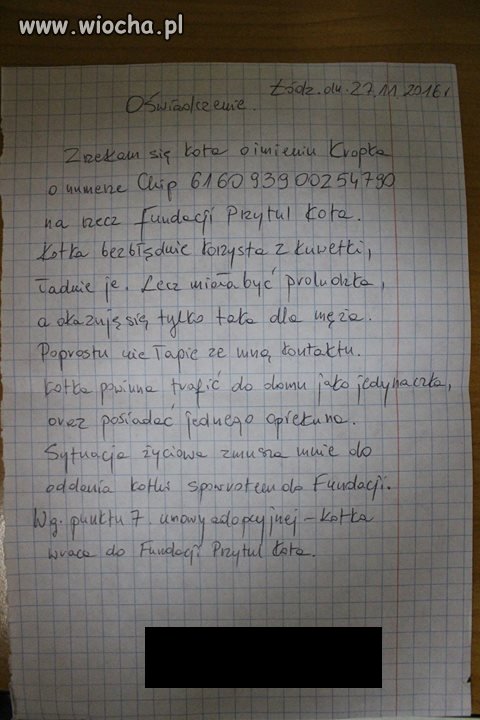 www.wiocha.pl
Łódź. dn. 27.11 2016r
Oświadczenie.
Zrzekam się kota o imieniu Kropka
o numerze Chip 616093900254790
na rzecz Fundacji Przytul Kota.
Kotka bezbłędnie korzysta z kuwetki,
ładnie je. Lecz miała być proludzka,
a okazuję się tylko taka dla męża.
Poprostu nie łapie ze mną kontaktu.
Kotka powinna trafić do domu jako jedynaczka,
oraz posiadać jednego opiekuna.
Sytuacja życiowa zmusza mnie do
oddania kotki spowrotem do Fundacji.
W.g. punktu 7. umowy adopcyjnej - kotka
wraca do Fundacji Przytul Kota.